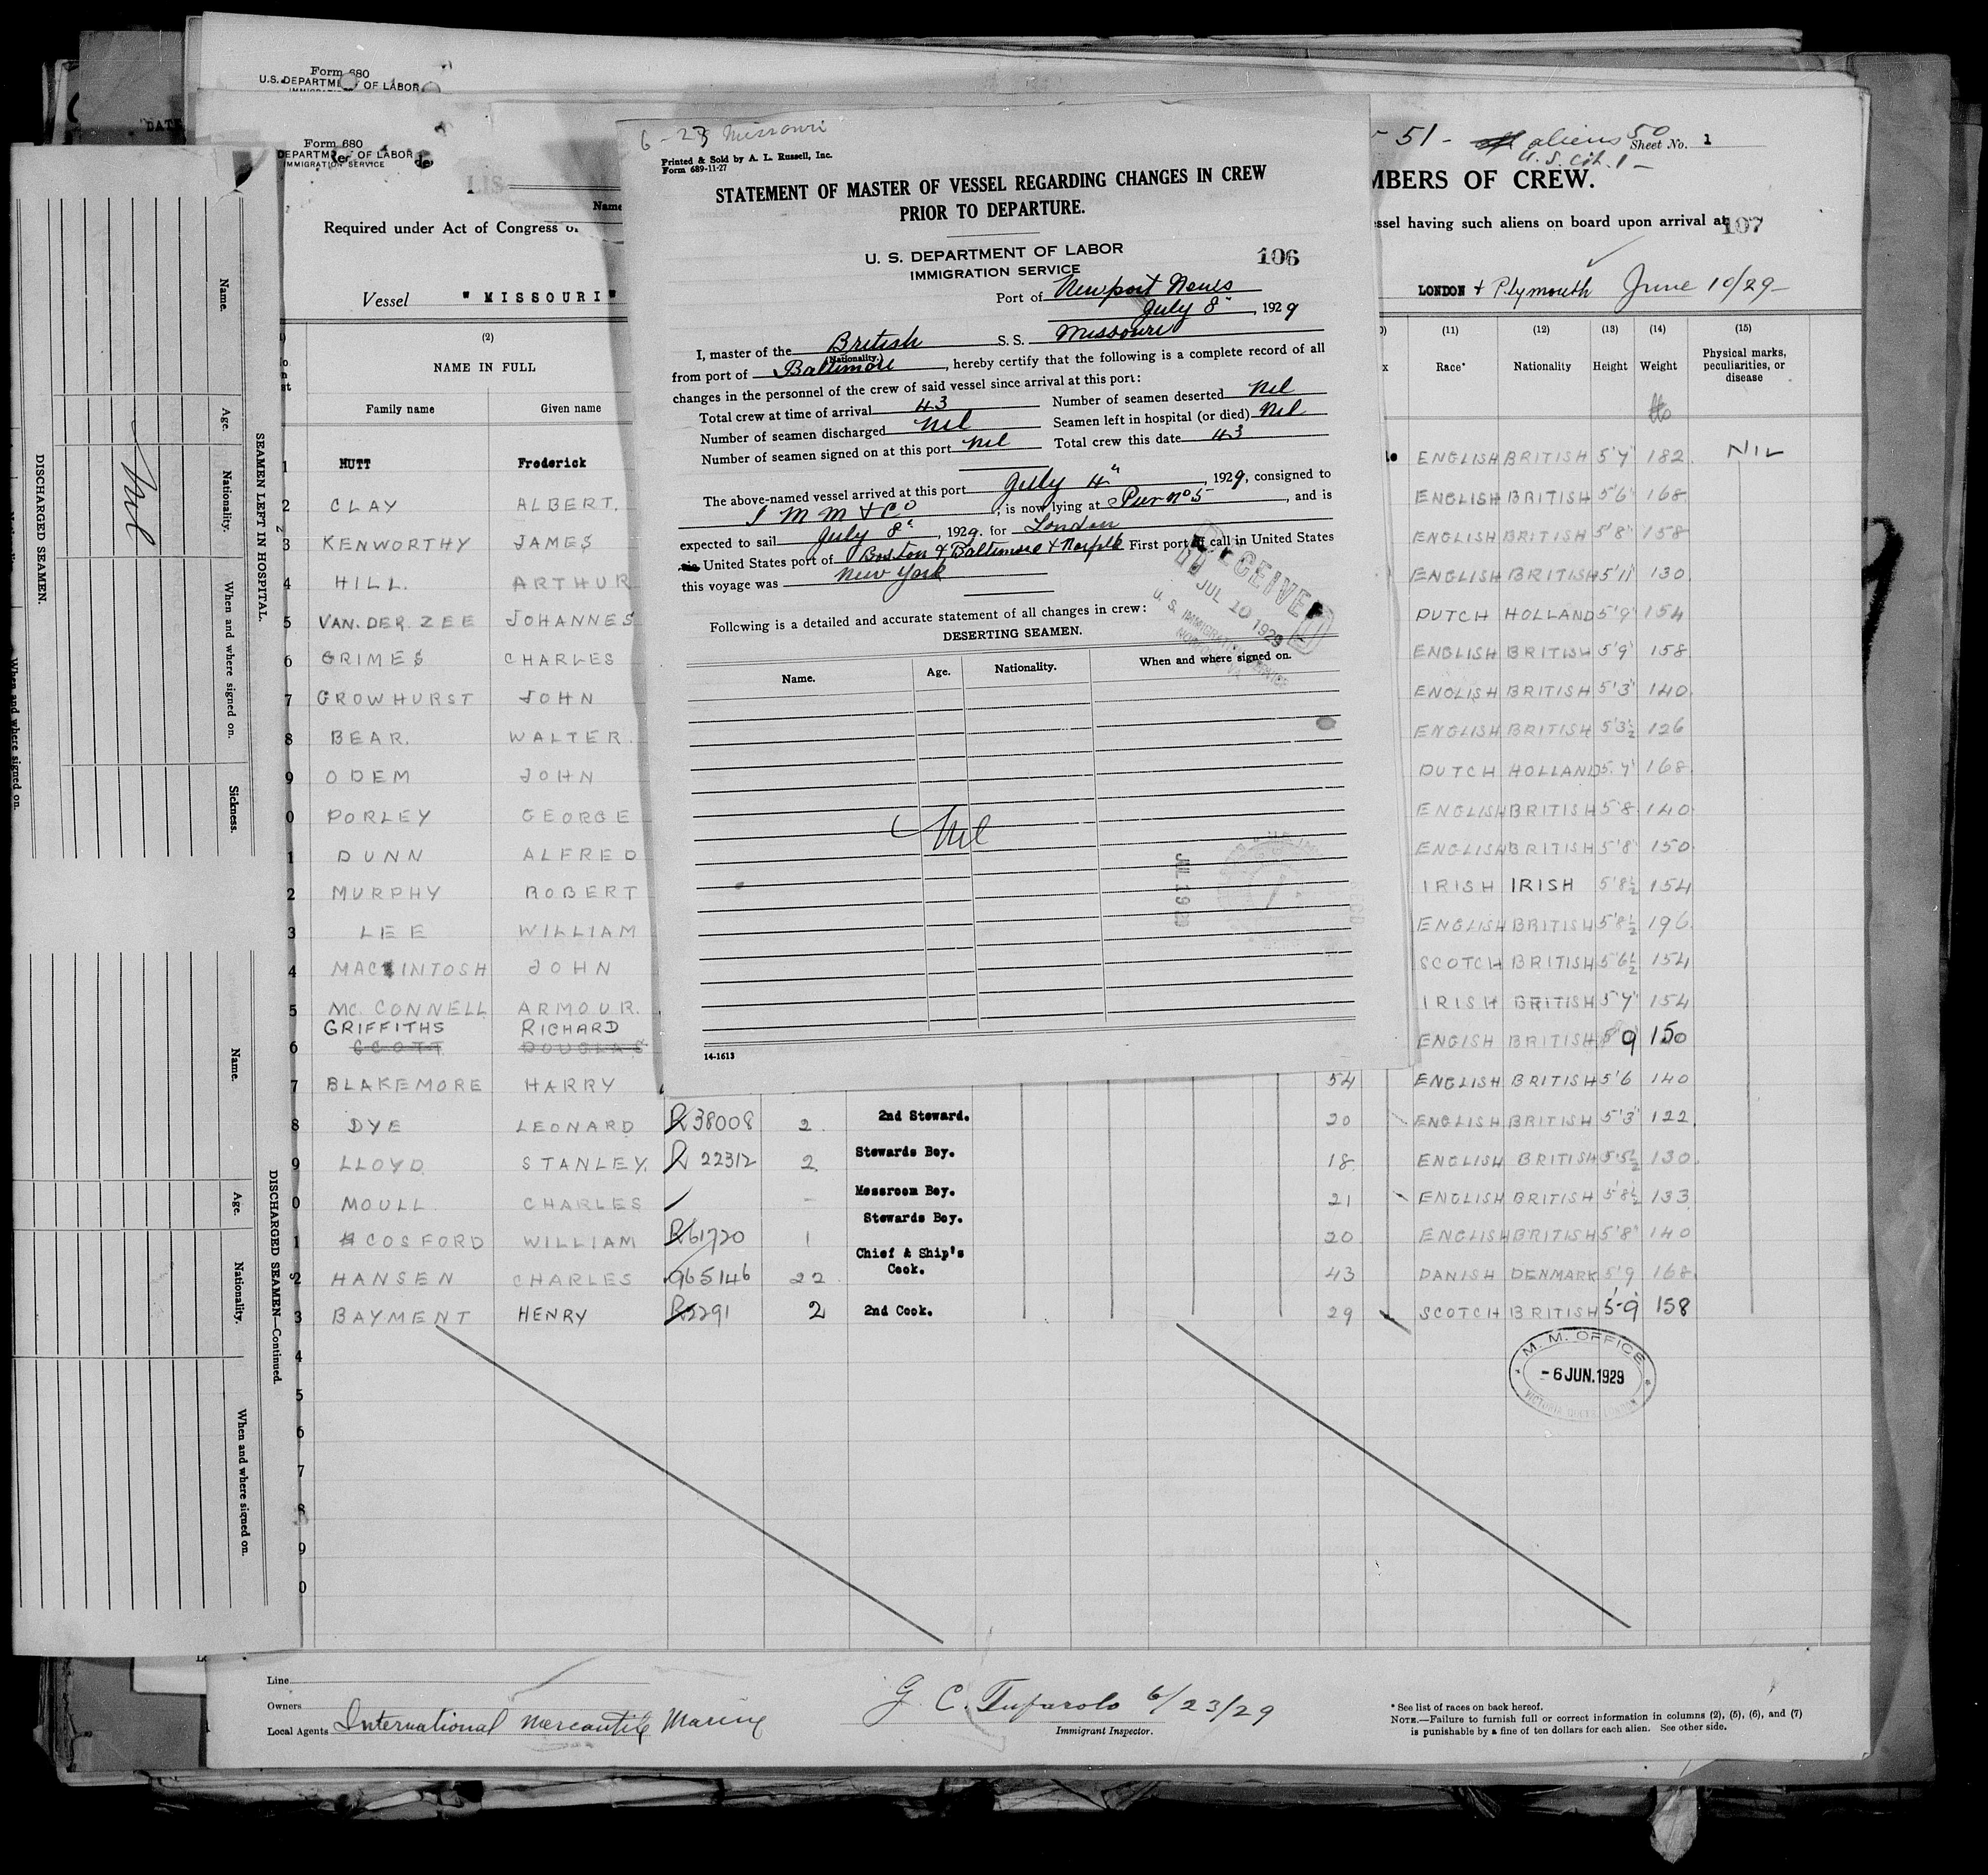 Form 680
U.S. DEPARTM OF LABOR
Form 680
DEPARTM OF LABOR
IMMIGRATION SERVICE
LIS
Name
Required under Act of Congress
Vessel " MISSOURI "
(2)
NAME IN FULL
Family name Given name
1 HUTT Frederick
2 CLAY ALBERT.
3 KENWORTHY JAMES
4 HILL. ARTHUR
5 VAN. DER ZEE JOHANNES
6 GRIMES CHARLES
7 GROWHURST JOHN
8 BEAR. WALTER
9 ODEM JOHN
0 PORLEY GEORGE
1 DUNN ALFRED
2 MURPHY ROBERT
3 LEE WILLIAM
4 MACKINTOSH JOHN
5 MC. CONNELL ARMOUR.
GRIFFITHS RICHARD
6 SCOTT DOUGLAS
7 BLAKEMORE HARRY
8 DYE LEONARD R38008 2 2nd Steward. 20
9 LLOYD STANLEY. R 22312 2 Stewards Boy. 18
0 MOULL CHARLES – Messroom Boy. 21
1 COSFORD WILLIAM R61720 1 Stewards Boy. 20
2 HANSEN CHARLES 965146 22 Chief & Ship's Cook. 43
3 BAYMENT HENRY R2291 2 2nd Cook. 29
4
5
6
7
8
9
0
6-23 Missouri
Printed & Sold by A. L. Russell, Inc.
Form 689-11-27
STATEMENT OF MASTER OF VESSEL REGARDING CHANGES IN CREW
PRIOR TO DEPARTURE.
U. S. DEPARTMENT OF LABOR
IMMIGRATION SERVICE
106
Port of Newport News
July 8", 1929
I, master of the British S. S. Missouri
(Nationality.)
from port of Baltimore, hereby certify that the following is a complete record of all
changes in the personnel of the crew of said vessel since arrival at this port:
Total crew at time of arrival 43 Number of seamen deserted Nil
Number of seamen discharged Nil Seamen left in hospital (or died) Nil
Number of seamen signed on at this port Nil Total crew this date 43
The above-named vessel arrived at this port July 4", 1929, consigned to
I M M & Co, is now lying at Pier no 5, and is
expected to sail July 8", 1929. for London
via United States port of Boston & Baltimore & Norfolk First port of call in United States
this voyage was New York
RECEIVED
JUL 10 1929
U. S. IMMIGRATION SERVICE
Following is a detailed and accurate statement of all changes in crew:
DESERTING SEAMEN.
Name. Age. Nationality. When and where signed on.
Nil
14-1613
51 - aliens 50 Sheet No. 1
U.S. cit. 1 -
MBERS OF CREW.
ssel having such aliens on board upon arrival at
107
LONDON + Plymouth June 10/29
(11) (12) (13) (14) (15)
Race* Nationality Height Weight Physical marks, peculiarities, or disease
ENGLISH BRITISH 5'7" 182 NIL
ENGLISH BRITISH 5'6" 168
ENGLISH BRITISH 5'8" 158
ENGLISH BRITISH 5'11" 130
DUTCH HOLLAND 5'9" 154
ENGLISH BRITISH 5'9" 158
ENGLISH BRITISH 5'3" 140
ENGLISH BRITISH 5'3½ 126
DUTCH HOLLAND 5.7" 168
ENGLISH BRITISH 5'8 140
ENGLISH BRITISH 5'8" 150
IRISH IRISH 5'8½ 154
ENGLISH BRITISH 5'8½ 196
SCOTCH BRITISH 5'6½ 154
IRISH BRITISH 5'7" 154
ENGISH BRITISH 5 9 150
54 ENGLISH BRITISH 5'6 140
ENGLISH BRITISH 5'3" 122
ENGLISH BRITISH 5'5½ 130
ENGLISH BRITISH 5'8½ 133
ENGLISH BRITISH 5'8" 140
DANISH DENMARK 5'9 168
SCOTCH BRITISH 5-9 158
M. M. OFFICE
- 6 JUN. 1929
Line
Owners
Local Agents International Mercantile Marine
G. C. Tufarolo 6/23/29
Immigrant Inspector.
* See list of races on back hereof.
NOTE.—Failure to furnish full or correct information in columns (2), (5), (6), and (7)
is punishable by a fine of ten dollars for each alien. See other side.
SEAMEN LEFT IN HOSPITAL.
Name. Age. Nationality. When and where signed on. Sickness.
Nil
DISCHARGED SEAMEN.
When and where signed on.
DISCHARGED SEAMEN—Continued.
Name. Age. Nationality. When and where signed on.